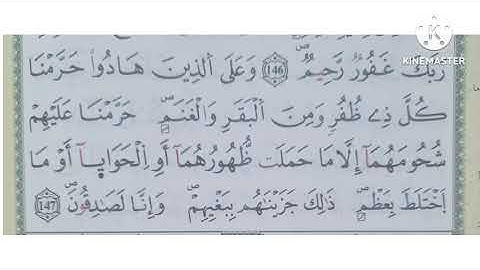 رَبَّكَ غَفُورٌ رَّحِيمٌ 146 وَعَلَى اَ۬لذِينَ هَادُواْ حَرَّمْنَا
كُلَّ ذِے ظُفُرٖ وَمِنَ اَ۬لْبَقَرِ وَالْغَنَمِ حَرَّمْنَا عَلَيْهِمْ
شُحُومَهُمَآ إِلَّا مَا حَمَلَت ظُّهُورُهُمَآ أَوِ اِ۬لْحَوَايَآ أَوْ مَا
اَ۪خْتَلَطَ بِعَظْمٖ ذَٰلِكَ جَزَيْنَٰهُم بِبَغْيِهِمْ وَإِنَّا لَصَٰدِقُونَ 147
KINEMASTER